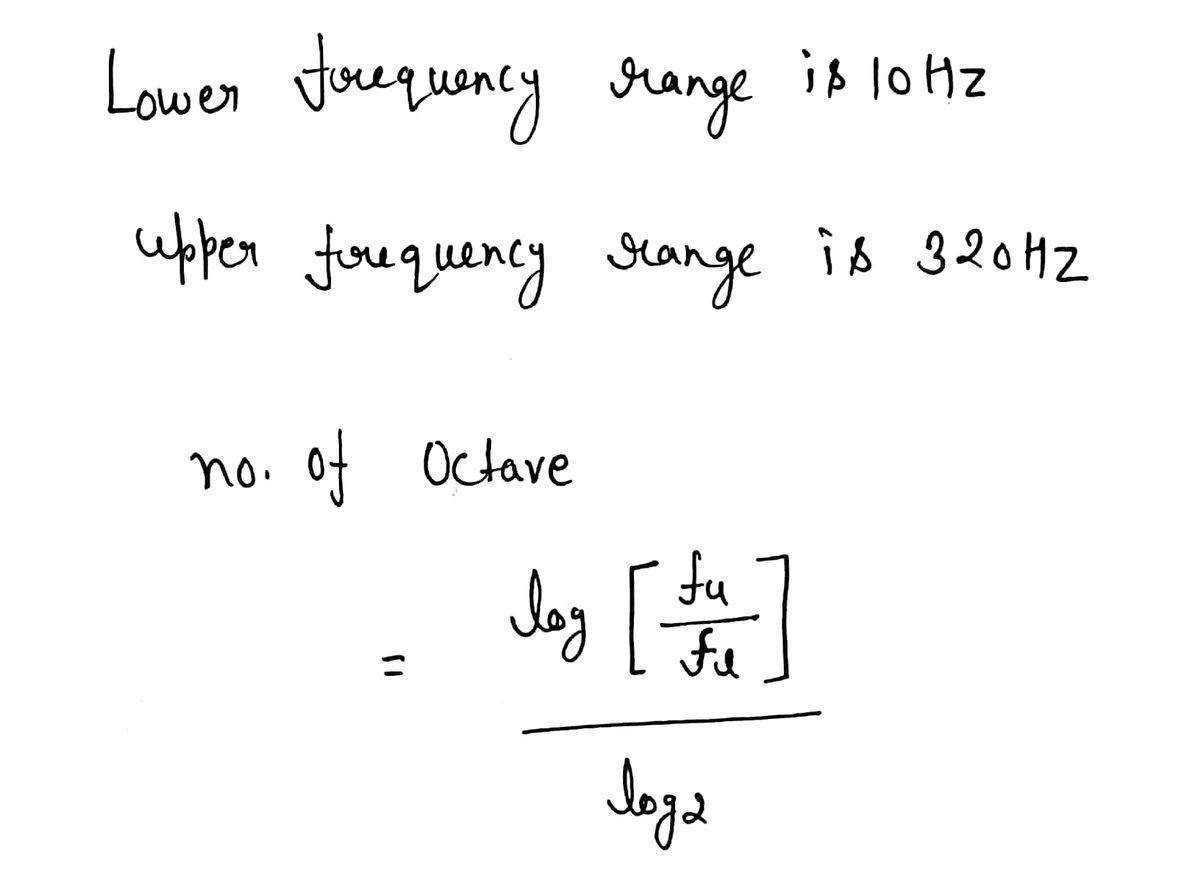 Lower frequency range is 10 Hz
upper frequency range is 320 Hz
no. of Octave
= log [ fu / fl ] / log 2